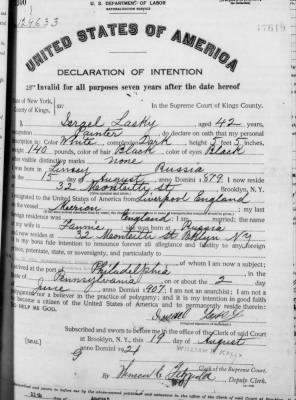 U. S. DEPARTMENT OF LABOR
NATURALIZATION SERVICE
124633
47619
UNITED STATES OF AMERICA
DECLARATION OF INTENTION
Invalid for all purposes seven years after the date hereof
State of New York,
County of Kings, ss: In the Supreme Court of Kings County.
Israel Lasky, aged 42 years,
occupation Painter, do declare on oath that my personal
description is: Color White, complexion Dark, height 5 feet 5 inches,
weight 140 pounds, color of hair Black, color of eyes Black
other visible distinctive marks none
born in Russia
on the 15 day of August, anno Domini 1879. I now reside
at 32 St., Brooklyn, N. Y.
I emigrated to the United States of America from Liverpool England
on the vessel Merion; my last
foreign residence was England; I am married; the name
of my wife is Fannie; she was born at Russia
and now resides at 32 St Bklyn NY
It is my bona fide intention to renounce forever all allegiance and fidelity to any foreign
prince, potentate, state, or sovereignty, and particularly to
, of whom I am now a subject;
I arrived at the port of Philadelphia, in the
State of Pennsylvania, on or about the 2 day
of June, anno Domini 1907. I am not an anarchist; I am not a
polygamist nor a believer in the practice of polygamy; and it is my intention in good faith
to become a citizen of the United States of America and to permanently reside therein:
SO HELP ME GOD.
Subscribed and sworn to before me in the office of the Clerk of said Court
[SEAL] at Brooklyn, N. Y., this 19 day of August
anno Domini 1921
WILLIAM E. KELLY
Clerk of the Supreme Court.
By, Deputy Clerk.